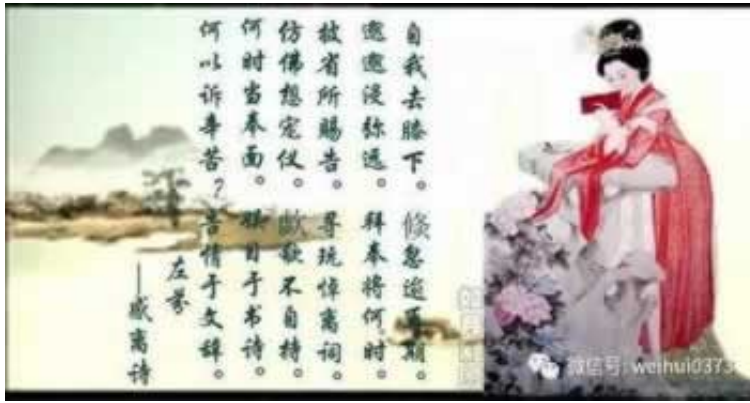 自我去膝下。倏忽逾再期。
邈邈浸弥远。拜奉将何时。
披省所赐告。寻玩悼离词。
仿佛想容仪。歔欷不自持。
何时当奉面。娱目于书诗。
何以诉辛苦？告情于文辞。
左芬
—感离诗
微信号: weihui0373